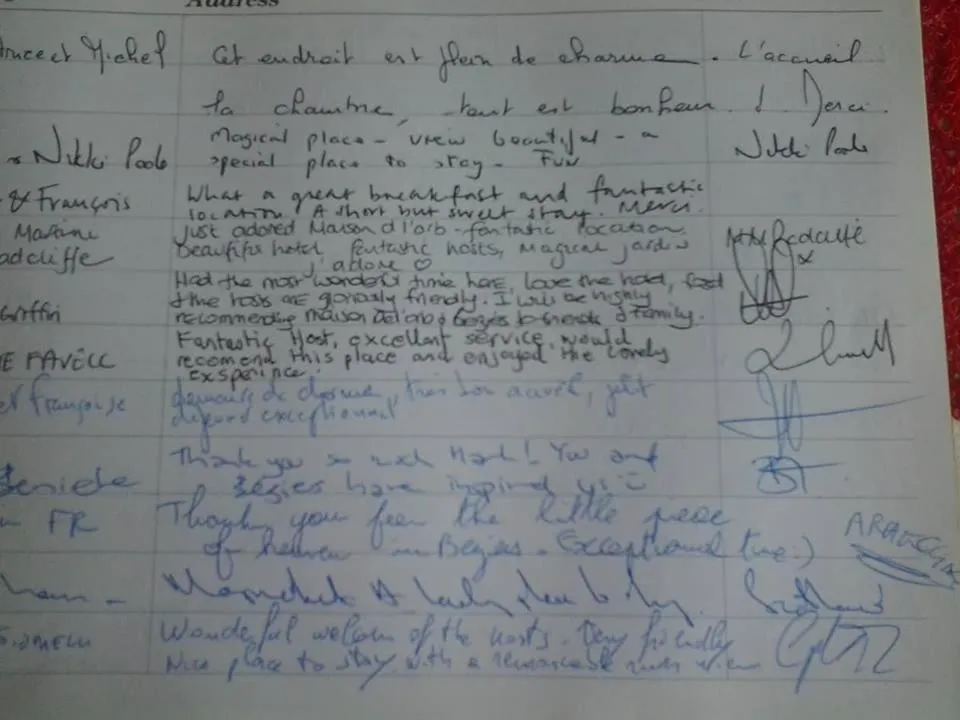 Address
Michel Cet endroit est plein de charme. L'accueil
la chambre, tout est bonheur ! Merci.
Nikki Poole Magical place - view beautiful - a Nikki Poole
special place to stay - Fun
& François What a great breakfast and fantastic
location. A short but sweet stay. Merci.
Just adored Maison d'Orb - fantastic location
adcliffe Beautiful hotel, fantastic hosts, magical jardin
J'adore ♡
Had the most wonderful time here, love the hotel, food
Griffin & the hosts are friendly. I will be highly
recommending Maison de l'orb & Bezies to friends & family.
Fantastic Host, excellent service, would
E FAVELL recomend this place and enjoyed the lovely
exsperince.
Françoise demeure de charme, très bon
exceptionnel
Thank you so much Mark! You and
Bézies have inspired us
FR Thank you for the little peace
of heaven in Bezies. Exceptional time :)
A lovely place to stay. Scotland
Wonderful welcom of the hosts. Very friendly
Nice place to stay with a remarcable view